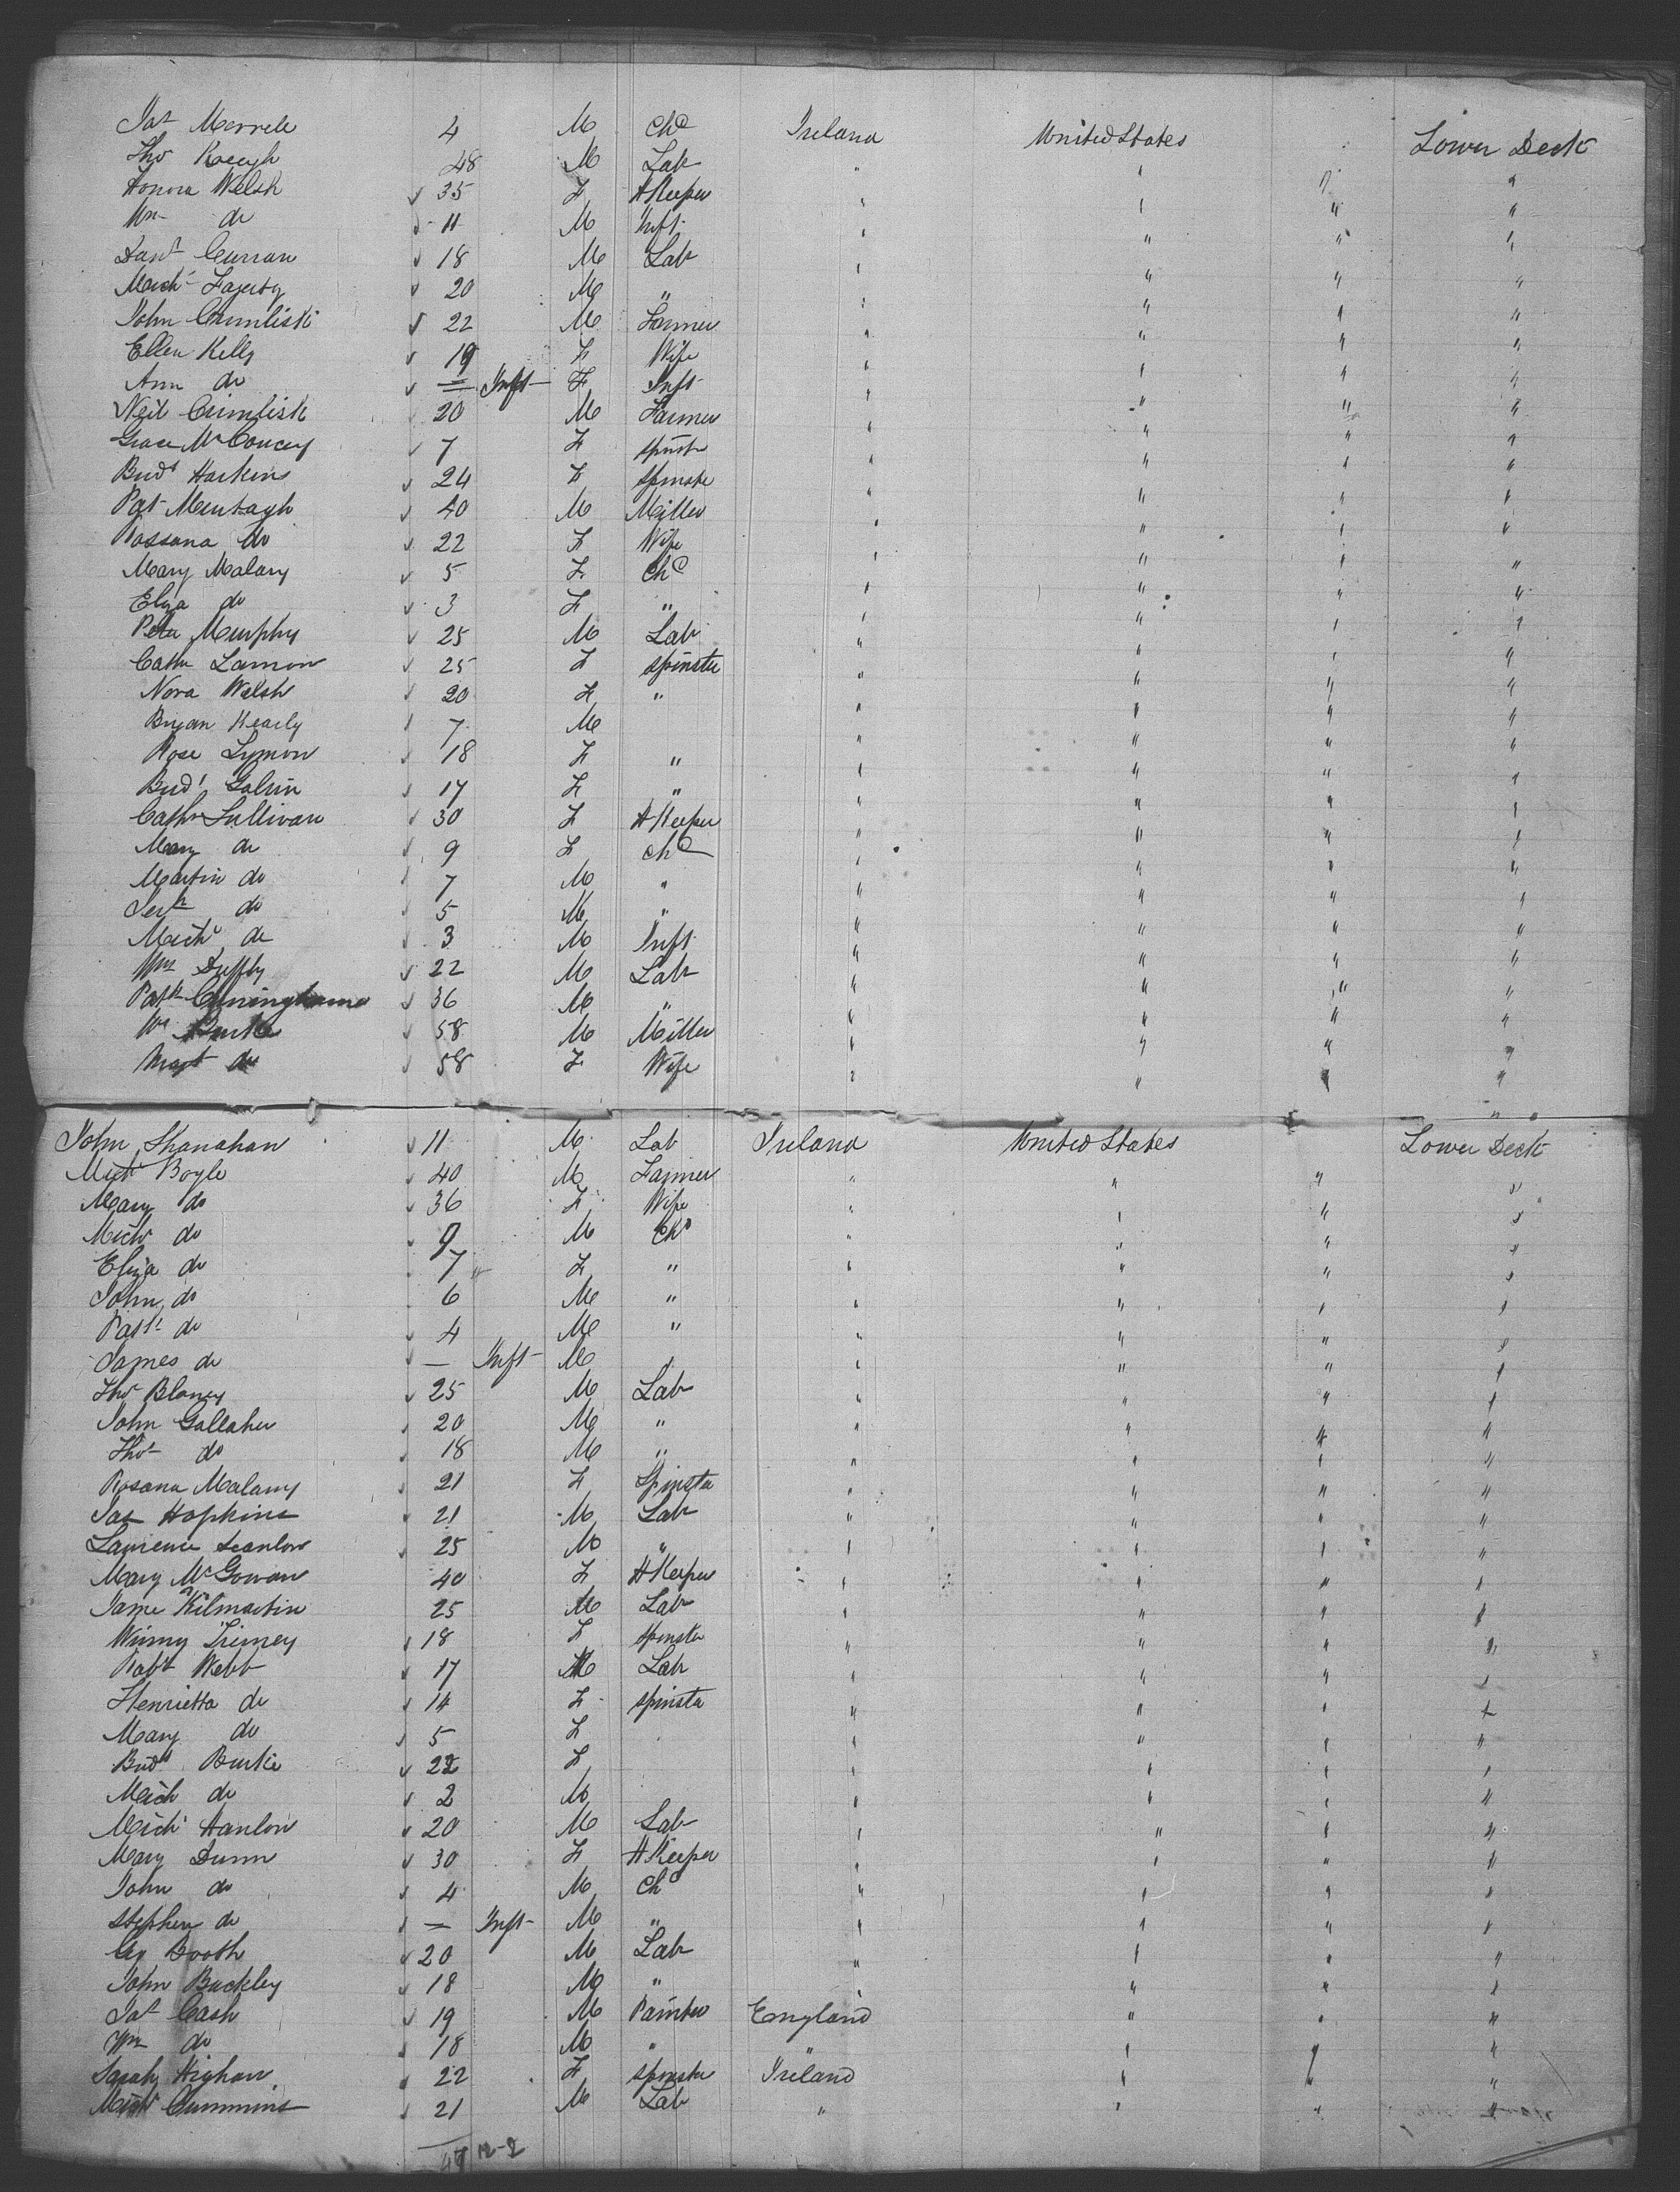 Jas Merrele 4 M Chd Ireland United States Lower Deck
Thos Keogh 48 M Lab " " " "
Honora Welsh 35 F H Keeper " " " "
Wm do 11 M Inft " " " "
Danl Curran 18 M Lab " " " "
Michl Fagerty 20 M " " " " "
John Crumlisk 22 M Farmer " " " "
Ellen Kelly 19 F Wife " " " "
Ann do = Inft F Inft " " " "
Neil Crimlisk 20 M Farmer " " " "
Grace 7 F spinst " " " "
Bridt Harkins 24 F Spinster " " " "
Pat Murtagh 40 M Miller " " " "
Rossana do 22 F Wife " " " "
Mary Malany 5 F Chd " " " "
Eliza do 3 F " " " " "
Peter Murphy 25 M Lab " " " "
Cathe Lamon 25 F Spinster " " " "
Nora Welsh 20 F " " " " "
Bryan Kearly 7 M " " " "
Rose Lymon 18 F " " " " "
Bridt Galvin 17 F " " " " "
Cathe Sullivan 30 F H Keeper " " " "
Mary do 9 F Chd " " " "
Martin do 7 M " " " " "
do 5 M " " " " "
Michl do 3 M Inft " " " "
Wm Duffy 22 M Lab " " " "
Patk Cuningham 36 M " " " " "
Wm Burke 58 M Miller " " " "
Margt do 58 F Wife " " " "
John Shanahan 11 M Lab Ireland United States Lower Deck
Michl Boyle 40 M Farmer " " " "
Mary do 36 F Wife " " " "
Michl do 9 M Chd " " " "
Eliza do 7 F " " " " "
John do 6 M " " " " "
Patk do 4 M " " " " "
James do — Inft M " " " " "
Thos Blaney 25 M Lab " " " "
John Gallaher 20 M " " " " "
Thos do 18 M " " " " "
Rosana Malany 21 F Spinster " " " "
Jas Hopkins 21 M Lab " " " "
Lawrence Scanlon 25 M " " " " "
Mary McGowan 40 F H Keeper " " " "
Jame Kilmartin 25 M Lab " " " "
Winny Tierney 18 F Spinster " " " "
Robt Webb 17 M Lab " " " "
Henrietta do 14 F Spinster " " " "
Mary do 5 F " " " "
Bridt Burke 22 F " " " "
Mich do 2 M " " " "
Michl Hanlon 20 M Lab " " " "
Mary Dunn 30 F H Keeper " " " "
John do 4 M Chd " " " "
Stephen do — Inft M " " " " "
Booth 20 M Lab " " " "
John Buckley 18 M " " " " "
Jas Cash 19 M Painter England " " "
Wm do 18 M " " " " "
Sarah Highan 22 F Spinster Ireland " " "
Michl Cummins 21 M Lab " " " "
47 12-2